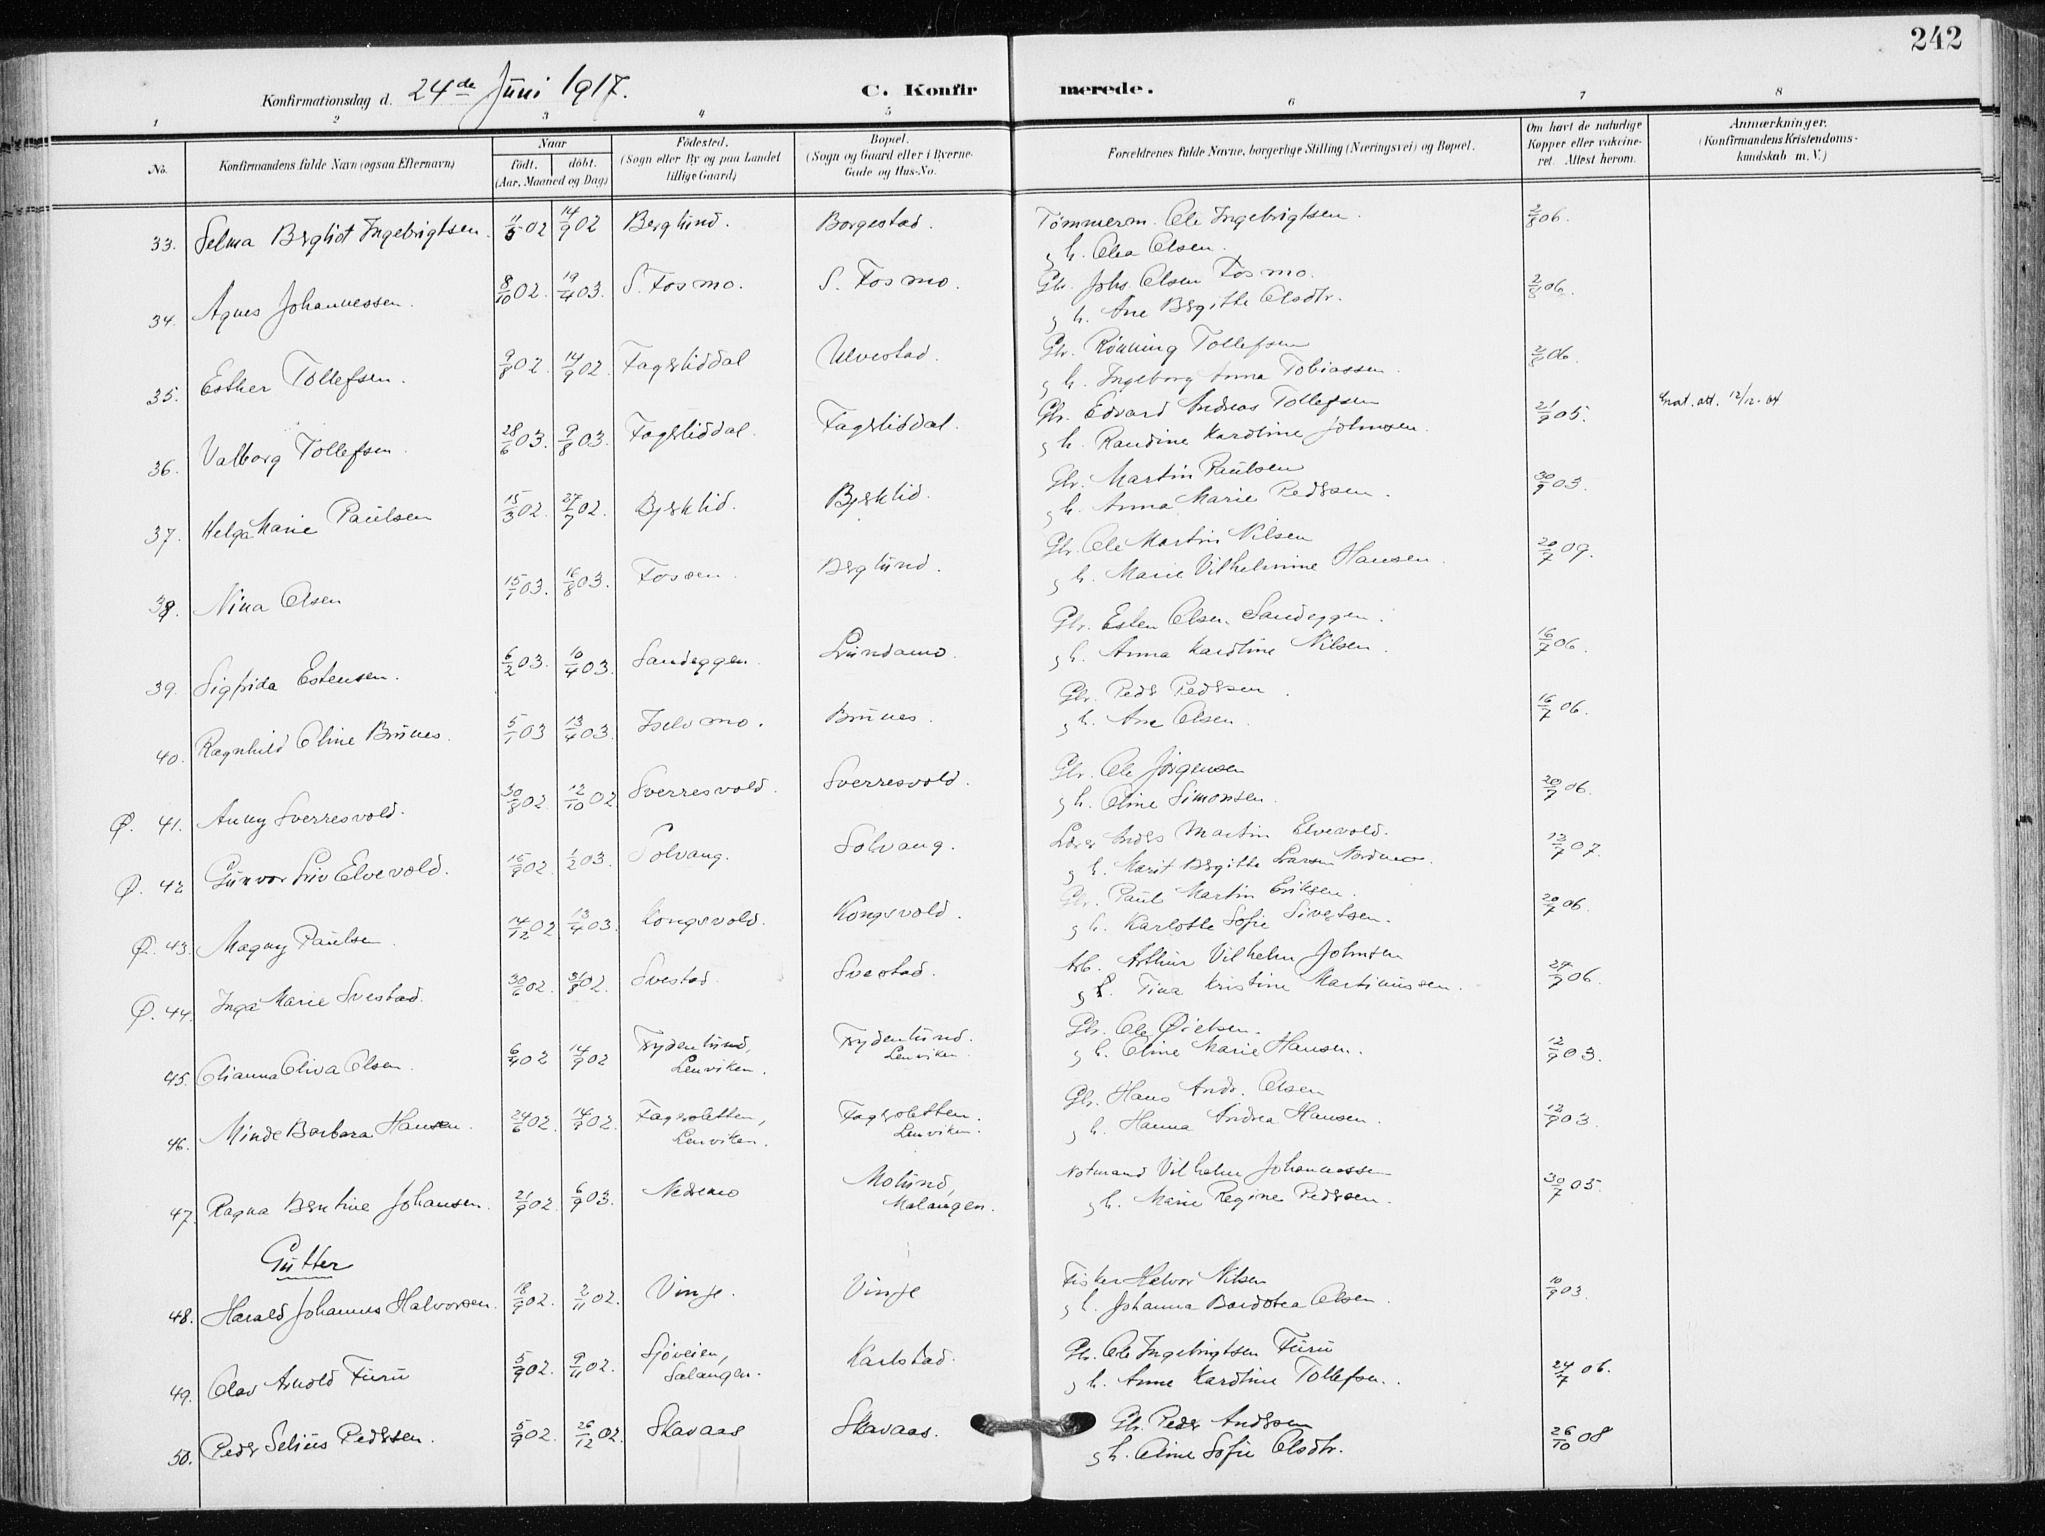 242
Konfirmationsdag d. 24de Juni 1917.
C. Konfirmerede.
1 2 3 4 5 6 7 8
No. Konfirmandens fulde Navn (ogsaa Efternavn) Naar født. døbt. (Aar, Maaned og Dag) Fødested. (Sogn eller By og paa Landet tillige Gaard) Bopæl. (Sogn og Gaard eller i Byerne Gade og Hus-No. Forældrenes fulde Navne, borgerlige Stilling (Næringsvei) og Bopæl. Om havt de naturlige Kopper eller vakcineret. Attest herom. Anmærkninger. (Konfirmandens Kristendomskundskab m. V.)
33. Selma Bergliot Ingebrigtsen. 11/5 02 14/9 02 Berglund. Borgestad. Tømmerm. Ole Ingebrigtsen. 2/8 06.
g h. Olea Olsen.
34. Agnes Johannessen. 8/10 02. 19/4 03. S. Fosmo. S. Fosmo. Gbr. Johs. Olsen Fosmo. 2/8 06.
g h. Ane Bergitte Olsdtr.
35. Esther Tollefsen. 9/8 02. 14/9 02. Fagerliddal Ulvestad. Gbr. Rønning Tollefsen 2/8 06.
g h. Ingeborg Anna Tobiassen.
36. Valborg Tollefsen. 28/6 03. 9/8 03. Fagerliddal. Fagerliddal. Gbr. Edvard Andreas Tollefsen 21/9 05. 12/12-64
g h. Randine Karoline Johnsen.
37. Helga Marie Paulsen 15/3 02. 27/7 02. Bjerklid. Bjerklid. Gbr. Martin Paulsen 30/9 03.
g h. Anna Marie Pedersen.
38. Nina Olsen 15/7 03. 16/8 03. Fossen. Berglund. Gbr. Ole Martin Nilsen 20/7 09.
g h. Marie Vilhelmine Hansen.
39. Sigfrida Estensen. 6/2 03. 10/4 03. Sandeggen. Lundamo. Gbr. Esten Olsen Sandeggen. 16/7 06.
g h. Anna Karoline Nilsen.
40. Ragnhild Oline Brunes. 5/1 03 13/4 03. Iselvmo. Brunes. Gbr. Peder Pedersen. 16/7 06.
g h. Ane Olsen.
Ø. 41. Anny Sverresvold. 30/8 02. 12/10 02 Sverresvold. Sverresvold. Gbr. Ole Jørgensen 20/7 06.
g h. Oline Simonsen.
Ø. 42 Gunvor Liv Elvevold. 15/9 02 1/2 03. Solvang. Solvang. Lærer Anders Martin Elvevold. 13/7 07.
g h. Marit Bergitte Larsen Nordmo.
Ø. 43. Magny Paulsen. 14/12 02 13/4 03. Kongsvold. Kongsvold. Gbr. Paul Martin Eriksen. 20/7 06.
g h. Karlotte Sofie Sivertsen.
Ø. 44. Inga Marie Svestad. 30/6 02. 31/8 02. Svestad. Svestad. Arb. Arthur Vilhelm Johnsen 27/9 06.
g h. Tina Kristine Martinussen.
45. Olianna Oliva Olsen. 6/4 02 14/9 02 Frydenlund, Lenviken. Frydenlund. Lenviken. Gbr. Ole Øielsen. 12/9 03.
g h. Eline Marie Hansen.
46. Minde Barbara Hansen. 24/6 02. 14/9 02. Fagersletten, Lenviken. Fagersletten. Lenviken. Gbr. Hans Andr. Olsen 12/9 03.
g h. Hanna Andrea Hansen.
47. Ragna Bentine Johansen. 21/9 02. 6/9 03. Nedremo Molund, Malangen. Notmand Vilhelm Johannessen 30/7 05.
g h. Marie Regine Pedersen.
Gutter
48. Harald Johannes Halvorsen. 18/9 02. 2/11 02. Vinje. Vinje Fisker Halvor Nilsen 10/9 03.
g h. Johanna Bardotea Olsen.
49. Olav Arnold Furu 5/9 02. 9/11 02. Sjøveien, Salangen. Karlstad. Gbr. Ole Ingebrigtsen Furu 24/7 06.
g h. Anne Karoline Tollefsen.
50. Peder Selius Pedersen. 5/9 02. 26/12 02. Skavaas Skavaas. Gbr. Peder Andersen 26/10 08
g h. Oline Sofie Olsdtr.